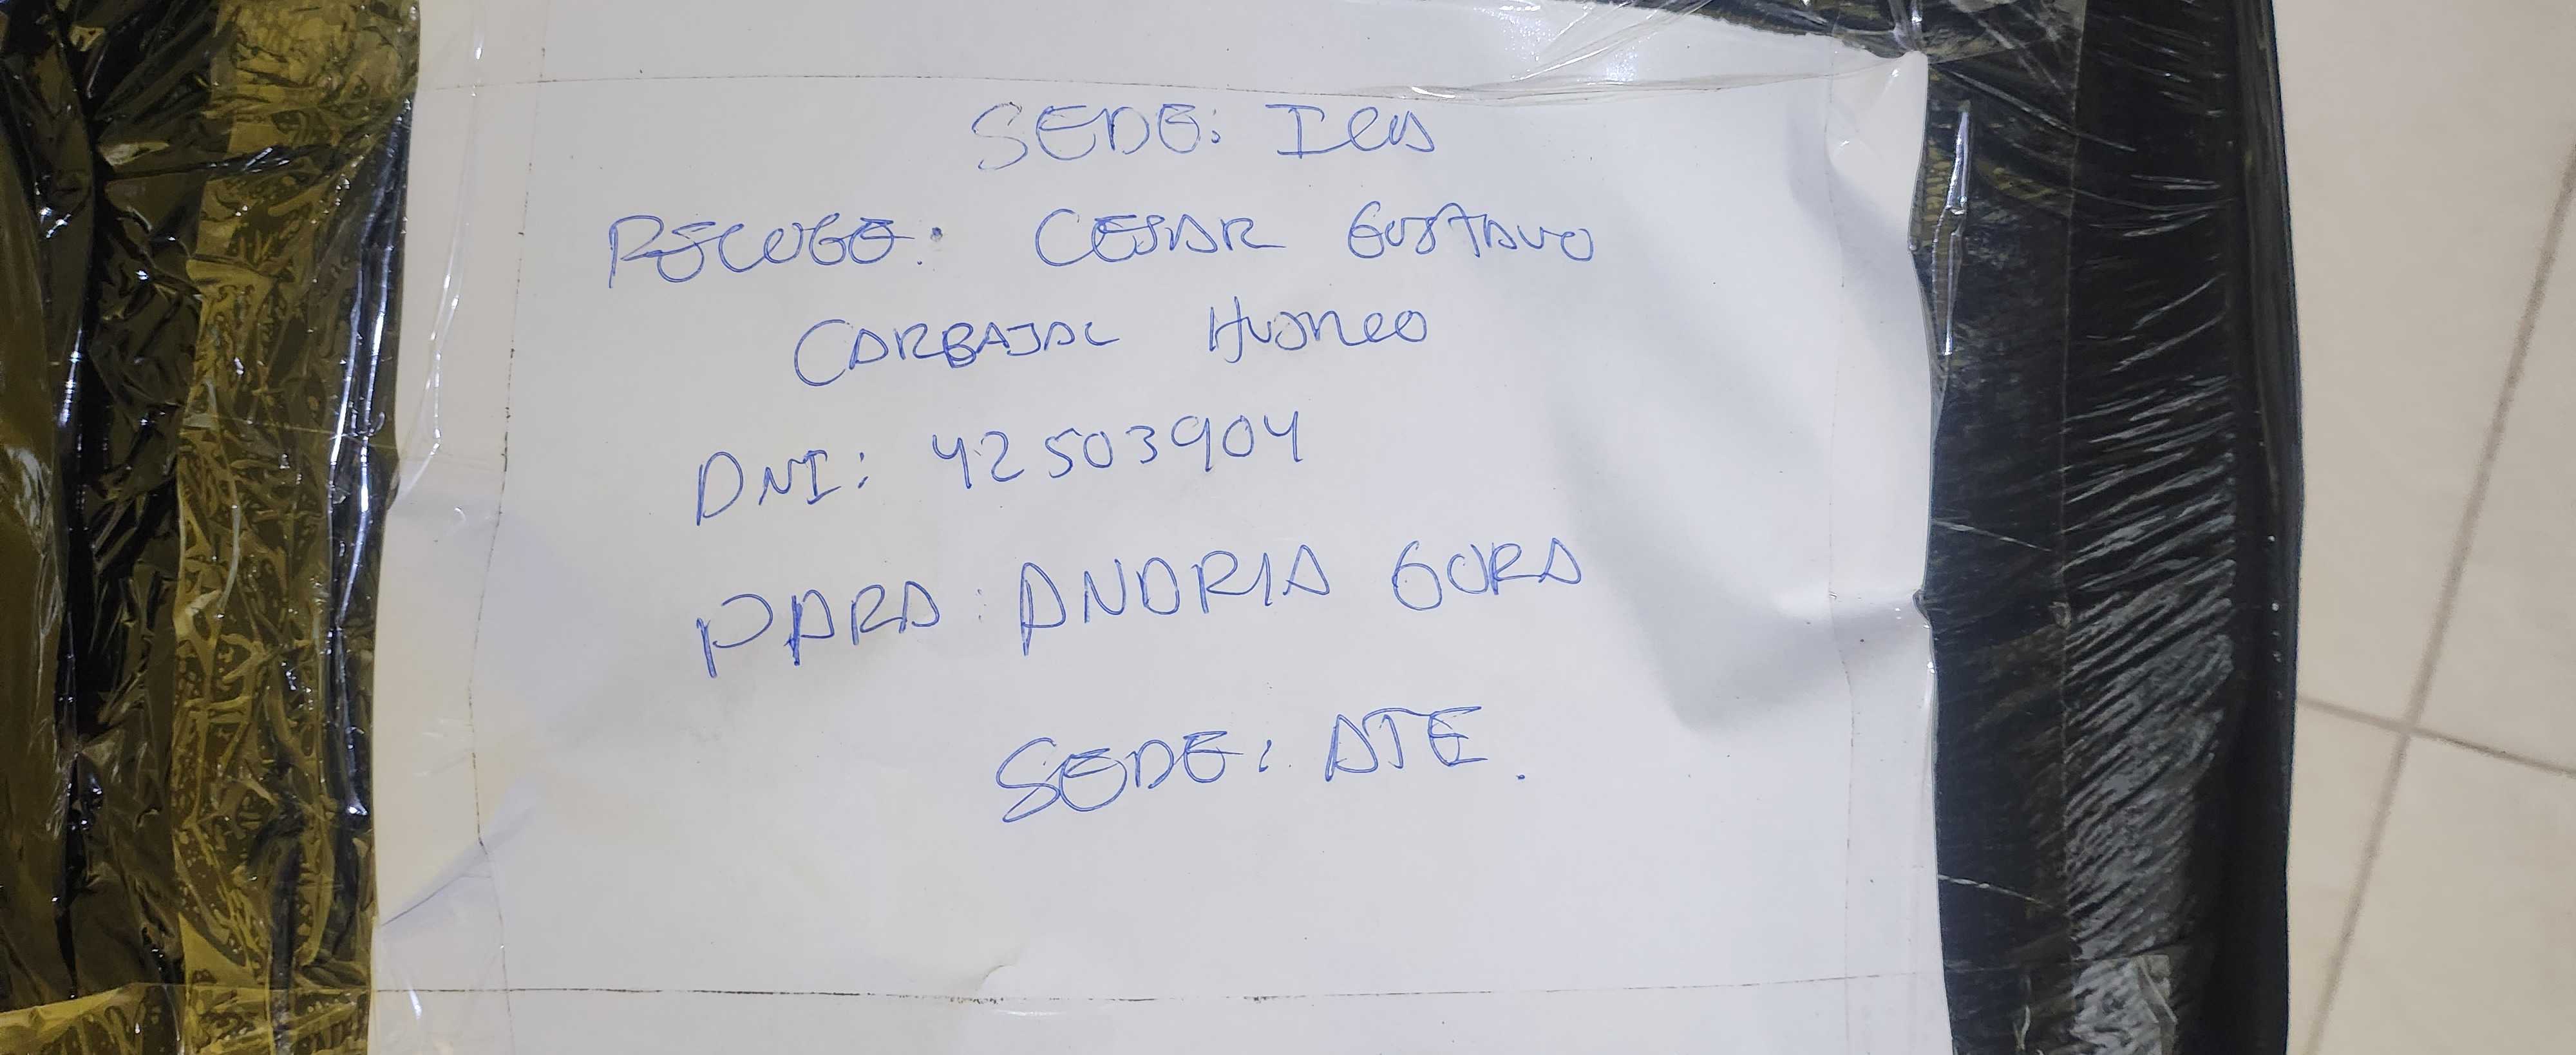 SEDE: ICA
RECOGE: CESAR GUSTAVO
CARBAJAL HUANCO
DNI: 42503904
PARA: ANDRIA GORA
SEDE: ATE.